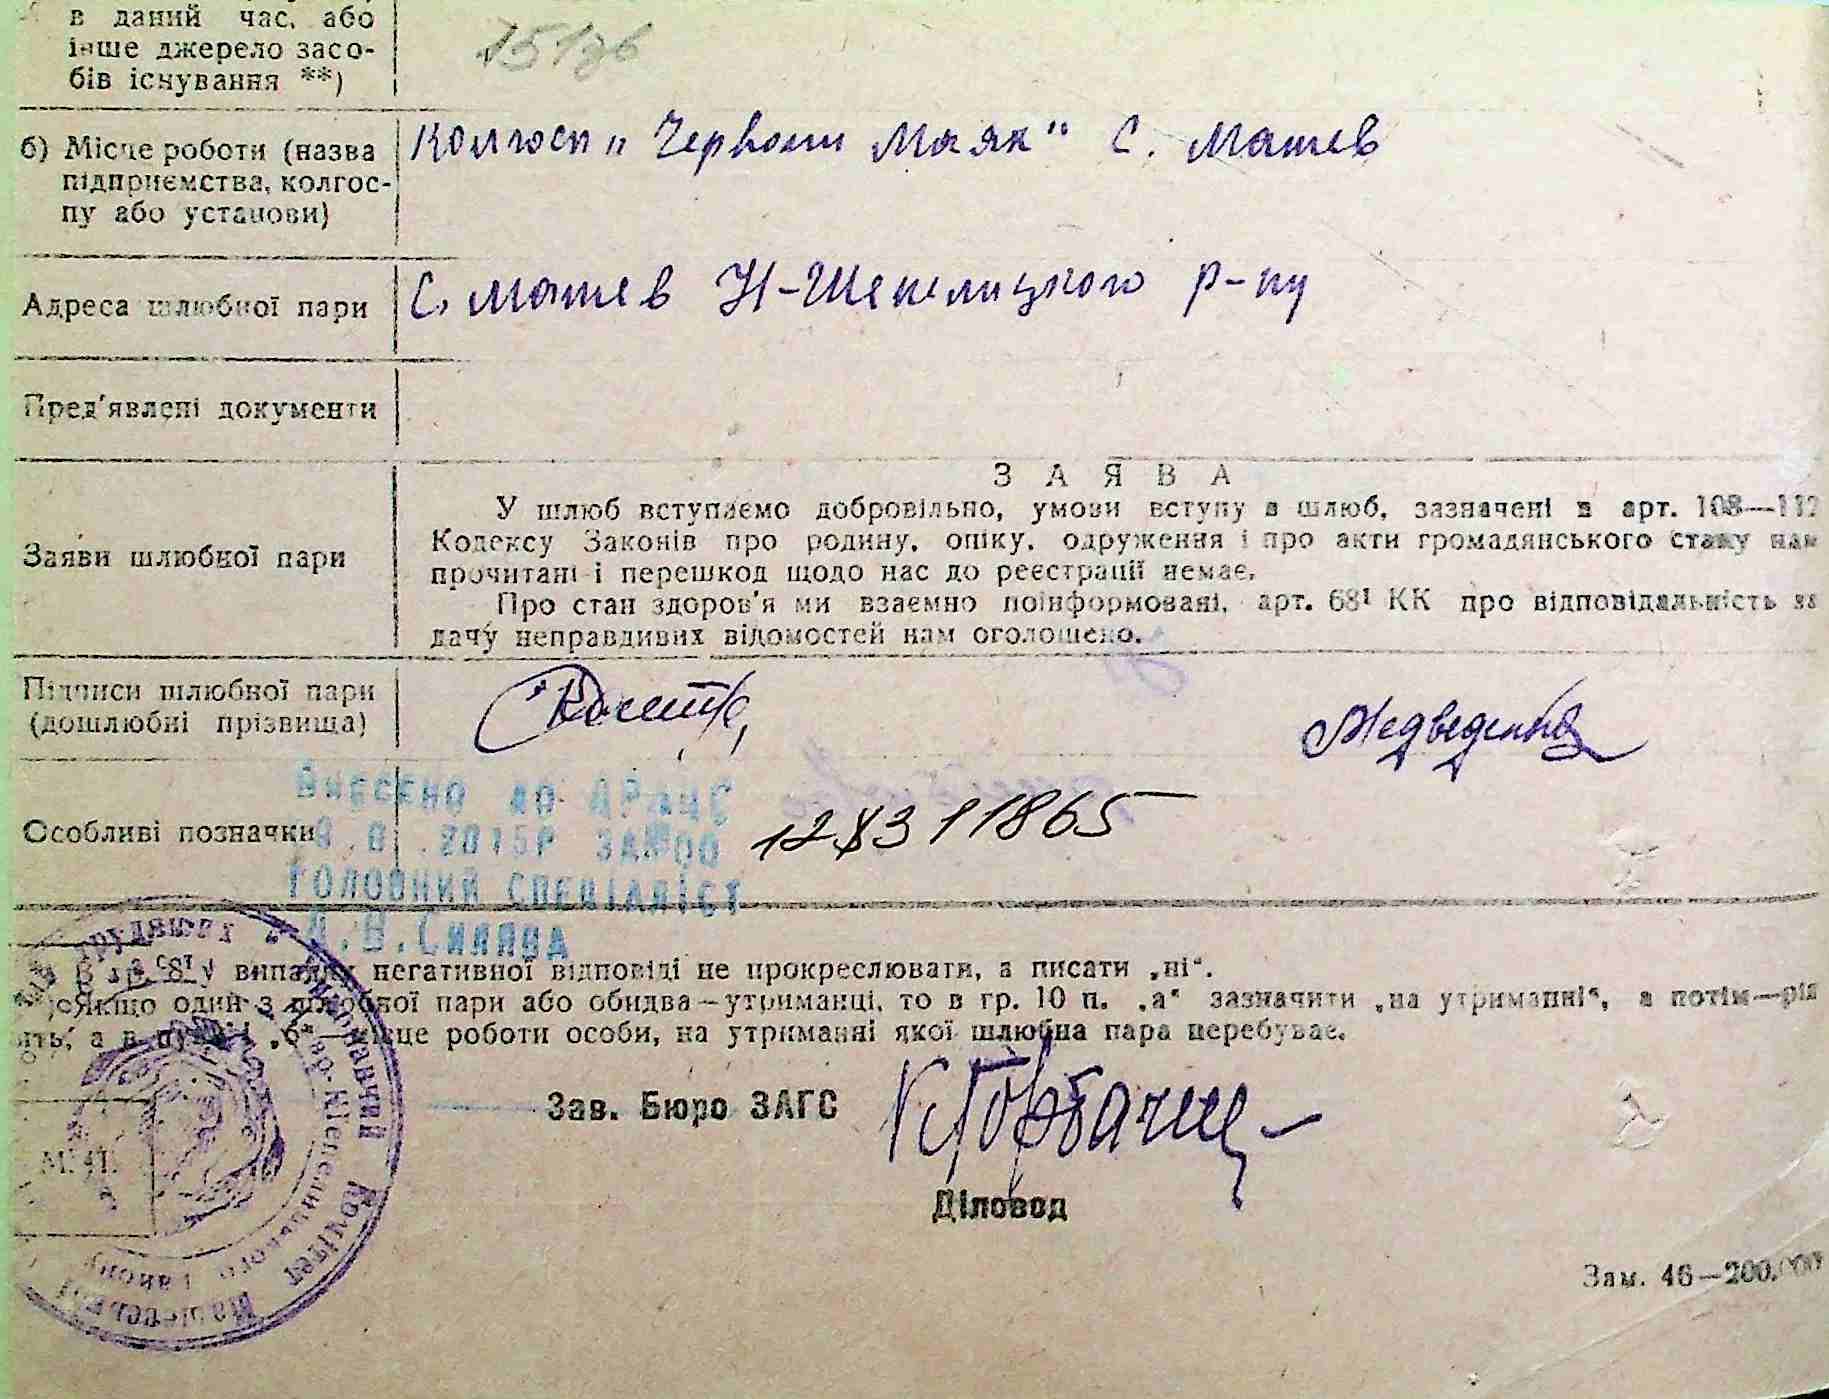 в даний час, або
інше джерело засо-
бів існування **)
б) Місце роботи (назва
підприємства, колгос-
пу або установи)
Колгосп „Червони Маяк" С. Машев
Адреса шлюбної пари
С. Машев Н-Шепелицкого р-ну
Пред'явлені документи
Заяви шлюбної пари
ЗАЯВА
У шлюб вступаємо добровільно, умови вступу в шлюб, зазначені в арт. 108—112
Кодексу Законів про родину, опіку, одруження і про акти громадянського стану нам
прочитані і перешкод щодо нас до реєстрації немає.
Про стан здоров'я ми взаємно поінформовані, арт. 68¹ КК про відповідальність за
дачу неправдивих відомостей нам оголошено.
Підписи шлюбної пари
(дошлюбні прізвища)
Особливі позначки
Внесено до ДРАЦС
2015р
Головний спеціаліст
11865
В гр. 8 у випадку негативної відповіді не прокреслювати, а писати „ні".
Якщо один з шлюбної пари або обидва—утриманці, то в гр. 10 п. „а" зазначити „на утриманні", а потім—рід
а в пункті „б"—місце роботи особи, на утриманні якої шлюбна пара перебуває.
М. П.
Виконавчий Комітет
Зав. Бюро ЗАГС
Діловод
Зам. 46—200.000